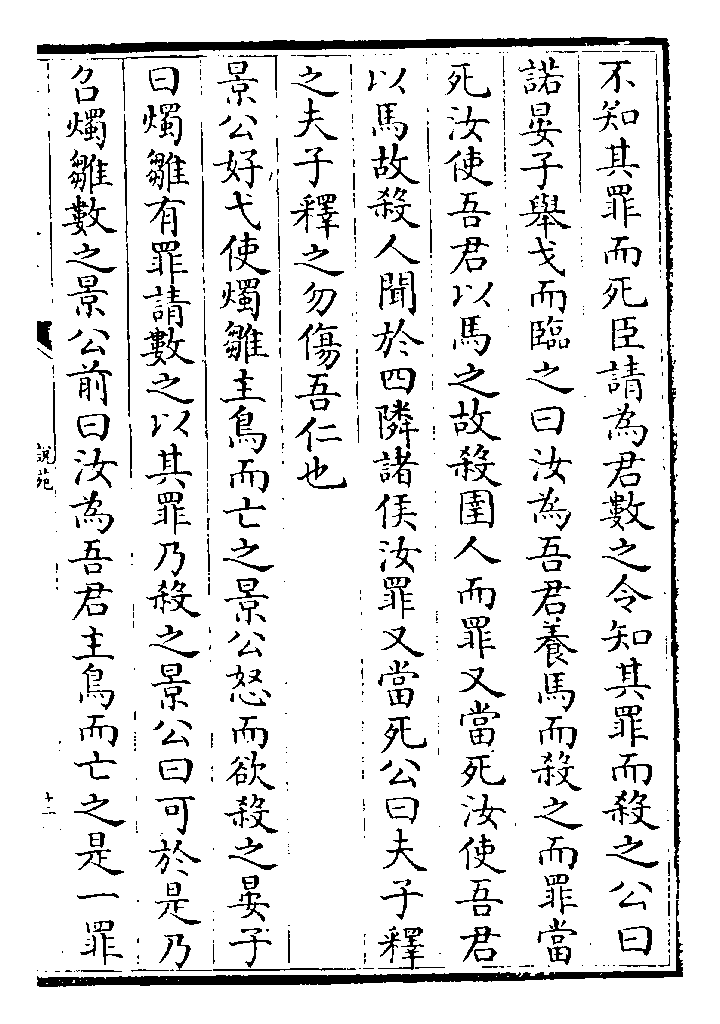 不知其罪而死臣請為君數之令知其罪而殺之公曰
諾晏子舉戈而臨之曰汝為吾君養馬而殺之而罪當
死汝使吾君以馬之故殺圉人而罪又當死汝使吾君
以馬故殺人聞於四隣諸侯汝罪又當死公曰夫子釋
之夫子釋之勿傷吾仁也
景公好弋使燭雛主鳥而亡之景公怒而欲殺之晏子
曰燭雛有罪請數之以其罪乃殺之景公曰可於是乃
召燭雛數之景公前曰汝為吾君主鳥而亡之是一罪
說苑
十二